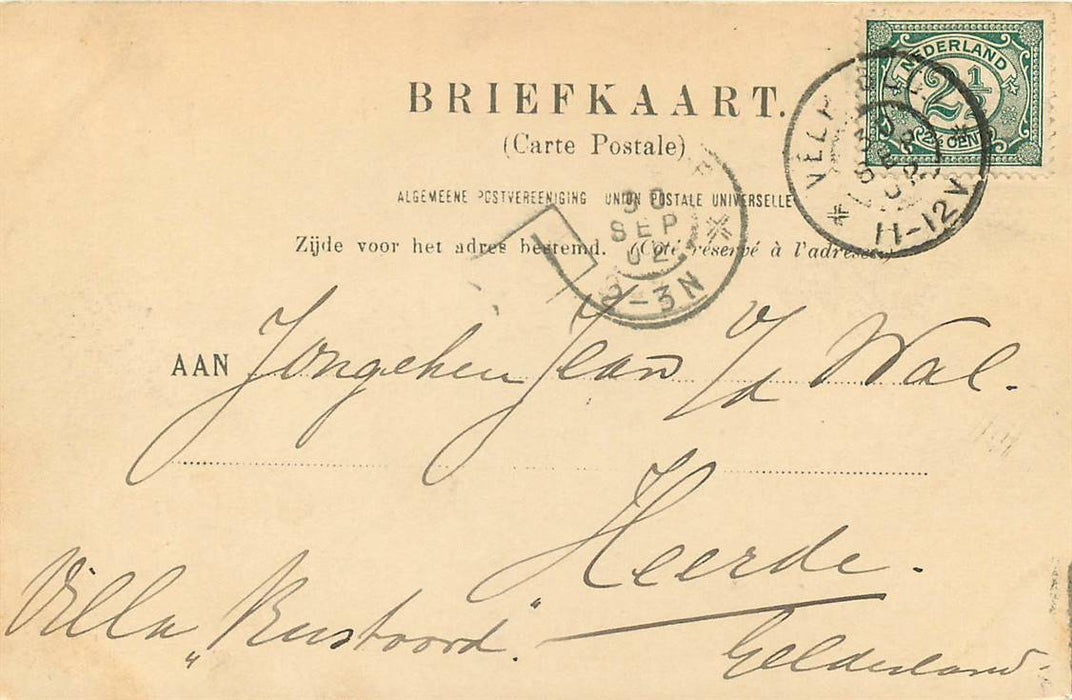 NEDERLAND
2½
2½ CENT
BRIEFKAART.
(Carte Postale)
ALGEMEENE POSTVEREENIGING UNION POSTALE UNIVERSELLE
Zijde voor het adres bestemd. (Côté réservé à l'adresse)
11-12V
30
SEP
02
3N
AAN Jongeheer Jean v/d Wal.
Heerde.
Villa „Rustoord".
Gelderland.